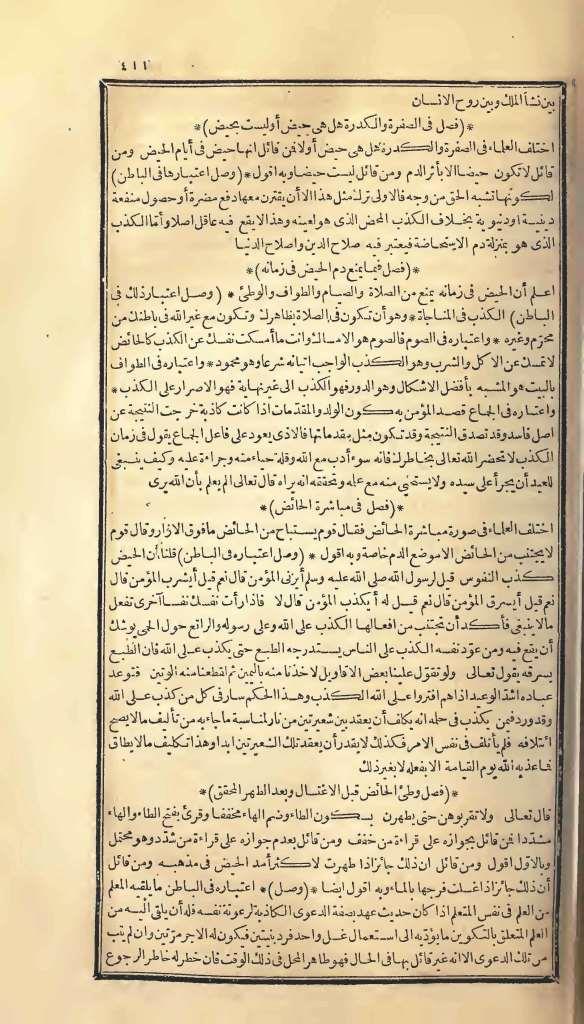 ٤١١
بين نشأ الملك وبين روح الانسان
*(فصل فى الصفرة والكدرة هل هى حيض أو ليست بحيض)*
اختلف العلماء فى الصفرة والكدرة هل هى حيض أولا فمن قائل انها حيض فى أيام الحيض ومن
قائل لا تكون حيضا الا بأثر الدم ومن قائل ليست حيضا وبه اقول * (وصل اعتبارها فى الباطن)
لكونها تشبه الحق من وجه فالاولى ترك مثل هذا الا أن يقترن معها دفع مضرة أو حصول منفعة
دينية أو دنيوية بخلاف الكذب المحض الذى هو لعينه وهذا لا يقع فيه عاقل اصلا وأما الكذب
الذى هو بمنزلة دم الاستحاضة فيعتبر فيه صلاح الدين واصلاح الدنيا
*(فصل فيما يمنع دم الحيض فى زمانه)*
اعلم أن الحيض فى زمانه يمنع من الصلاة والصيام والطواف والوطئ * (وصل اعتبار ذلك فى
الباطن) الكذب فى المناجاة * وهو أن تكون فى الصلاة بظاهرك وتكون مع غير الله فى باطنك من
محرم وغيره * واعتباره فى الصوم فالصوم هو الامساك وانت ما أمسكت نفسك عن الكذب كالحائض
لا تمسك عن الاكل والشرب وهو الكذب الواجب اتيانه شرعا وهو محمود * واعتباره فى الطواف
بالبيت هو المشبه بأفضل الاشكال وهو الدور فهو الكذب الى غير نهاية فهو الاصرار على الكذب *
واعتباره فى الجماع قصد المؤمن به كون الولد والمقدمات اذا كانت كاذبة خرجت النتيجة عن
اصل فاسد وقد تصدق النتيجة وقد تكون مثل مقدماتها فالاذى يعود على فاعل الجماع يقول فى زمان
الكذب لا تحضر الله تعالى بخاطرك فانه سوء أدب مع الله وقلة حياء منه وجراءة عليه وكيف ينبغى
للعبد أن يجرأ على سيده ولا يستحيى منه مع علمه وتحققه انه يراه قال تعالى الم يعلم بأن الله يرى
*(فصل فى مباشرة الحائض)*
اختلف العلماء فى صورة مباشرة الحائض فقال قوم يستباح من الحائض ما فوق الازار وقال قوم
لا يجتنب من الحائض الا موضع الدم خاصة وبه اقول * (وصل اعتباره فى الباطن) قلنا ان الحيض
كذب النفوس قيل لرسول الله صلى الله عليه وسلم أيزنى المؤمن قال نعم قيل أيشرب المؤمن قال
نعم قيل أيسرق المؤمن قال نعم قيل له أيكذب المؤمن قال لا فاذا رأت نفسك نفسا آخرى تفعل
ما لا ينبغى فأكد أن تجتنب من افعالها الكذب على الله وعلى رسوله والراتع حول الحمى يوشك
أن يقع فيه ومن عود نفسه الكذب على الناس يستدرجه الطبع حتى يكذب على الله فان الطبع
يسرقه يقول تعالى ولو تقول علينا بعض الاقاويل لاخذنا منه باليمين ثم لقطعنا منه الوتين فتوعد
عباده اشد الوعيد اذا هم افتروا على الله الكذب وهذا الحكم سار فى كل من كذب على الله
وقد ورد فيمن يكذب فى حلمه انه يكلف أن يعقد بين شعيرتين من نار لمناسبة ما جاء به من تأليف ما لا يصح
ائتلافه فلم يأتلف فى نفس الامر فكذلك لا يقدر أن يعقد تلك الشعيرتين ابدا وهذا تكليف ما لا يطاق
فما عذبه الله يوم القيامة الا بفعله لا بغير ذلك
*(فصل وطئ الحائض قبل الاغتسال وبعد الطهر المحقق)*
قال تعالى ولا تقربوهن حتى يطهرن بسكون الطاء وضم الهاء مخففا وقرئ بفتح الطاء والهاء
مشددا فمن قائل بجوازه على قراءة من خفف ومن قائل بعدم جوازه على قراءة من شدد وهو محتمل
وبالاول اقول ومن قائل ان ذلك جائز اذا طهرت لاكثر أمد الحيض فى مذهبه ومن قائل
أن ذلك جائز اذا غسلت فرجها بالماء وبه اقول ايضا * (وصل) * اعتباره فى الباطن ما يلقيه المعلم
من العلم فى نفس المتعلم اذا كان حديث عهد بصفة الدعوى الكاذبة لرعونة نفسه فله أن يلقى اليه من
العلم المتعلق بالتكوين ما يؤديه الى استعمال غسل واحد فرد بنيتين فيكون له الاجر مرتين وان لم يتب
من تلك الدعوى الا انه غير قائل بها فى الحال فهو طاهر المحل فى ذلك الوقت فان خطر له خاطر الرجوع